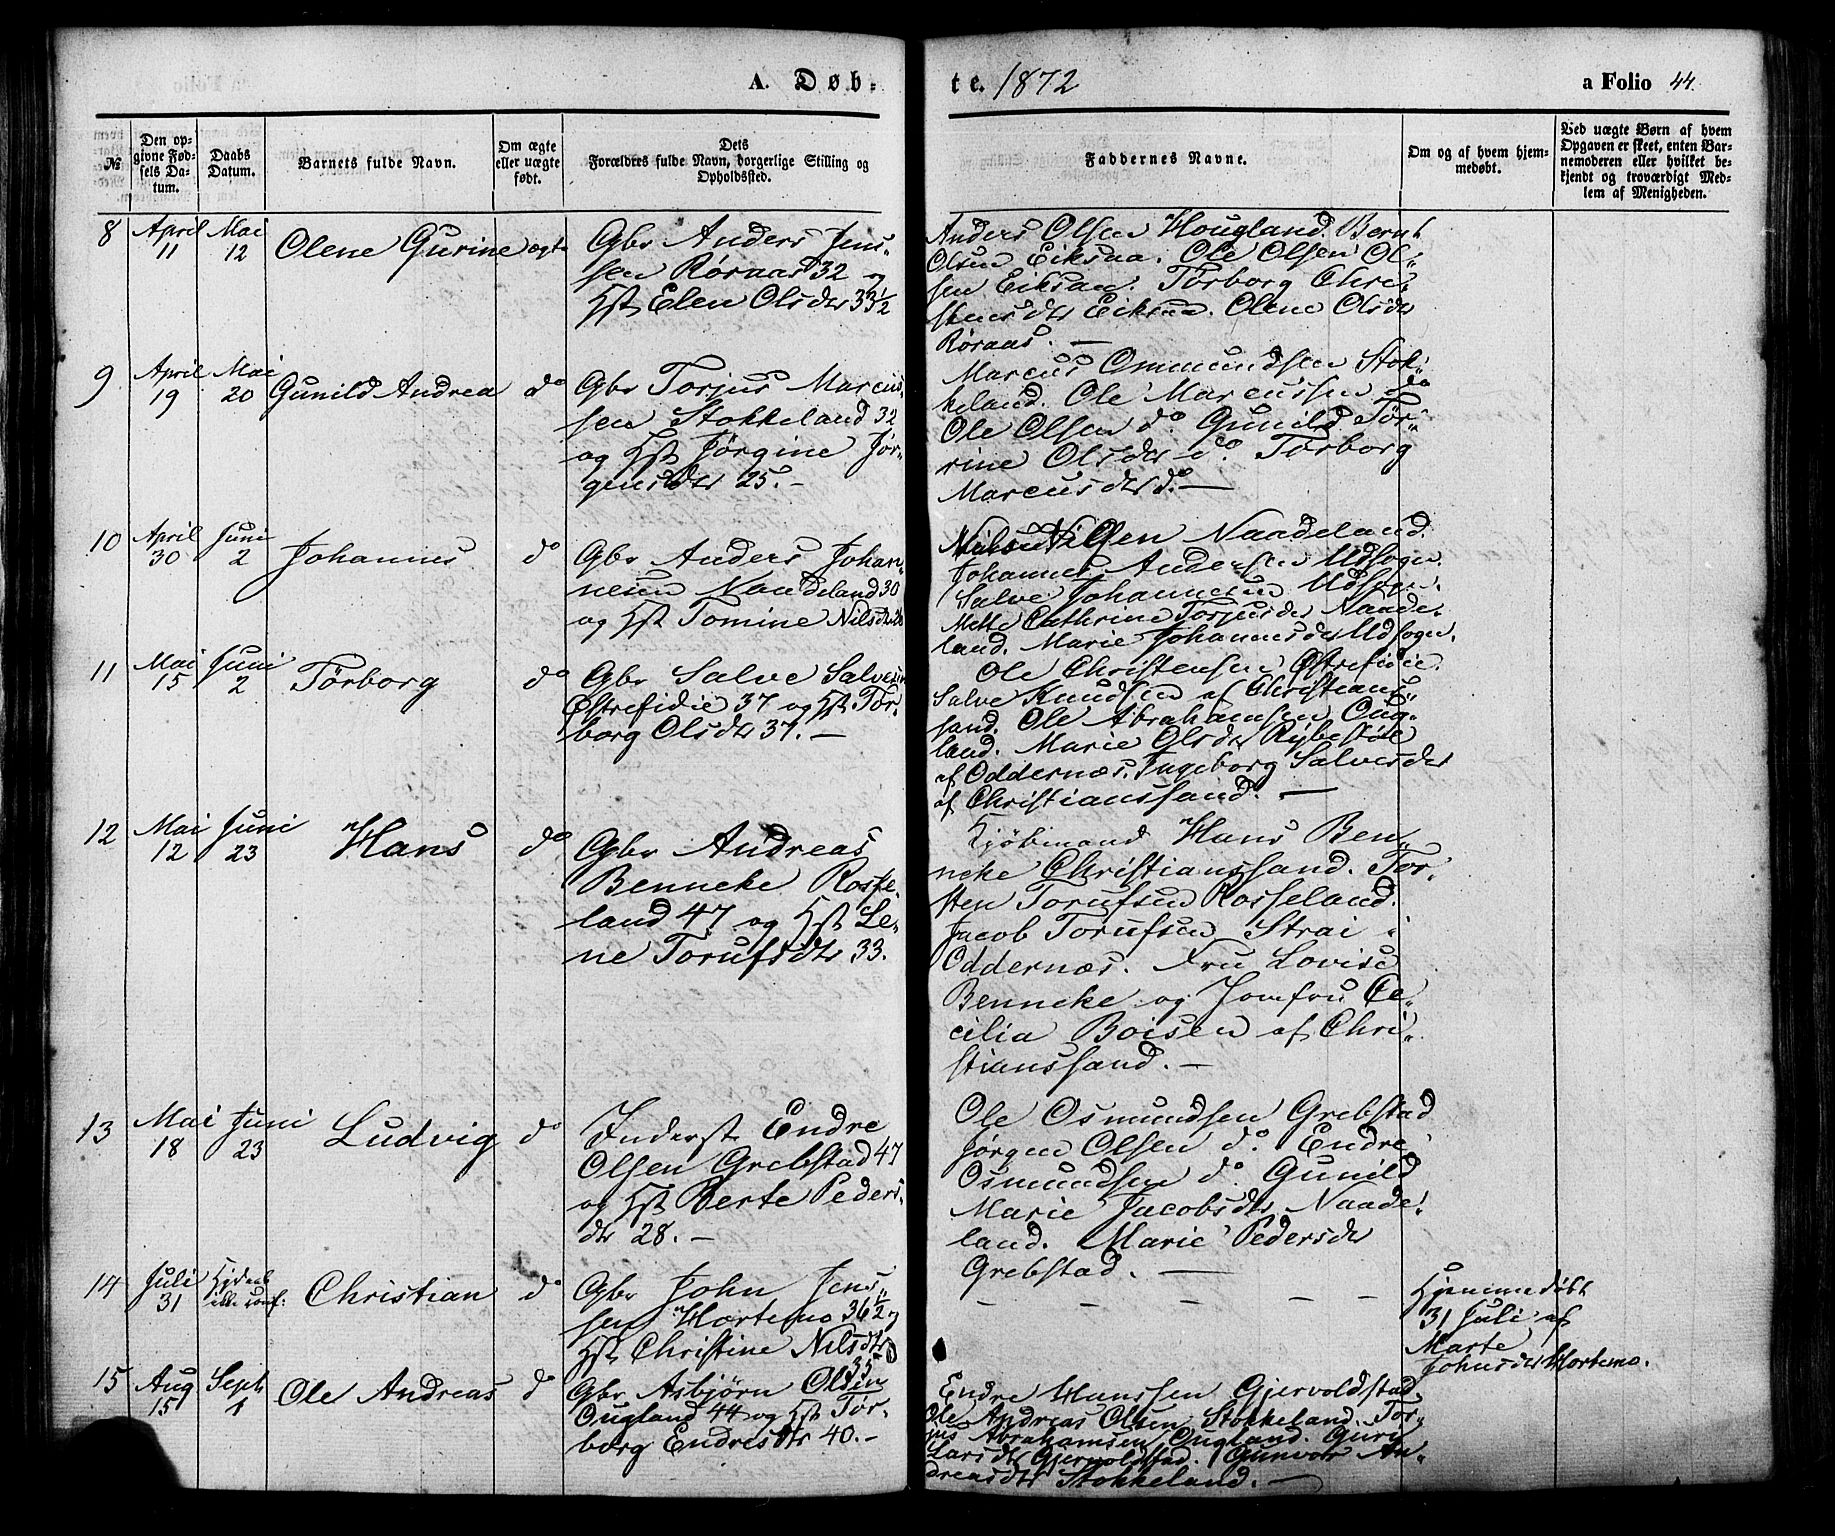 A. Døb-
te. 1872
a Folio 44.
№
Den op-
givne Fød-
sels Da-
tum.
Daabs
Datum.
Barnets fulde Navn.
Om ægte
eller uægte
født.
Dets
Forældres fulde Navn, borgerlige Stilling og
Opholdssted.
Faddernes Navne.
Om og af hvem hjem-
medøbt.
Ved uægte Børn af hvem
Opgaven er skeet, enten Bar-
nemoderen eller hvilket be-
kjendt og troværdigt Med-
lem af Menigheden.
8
April
11
Mai
12
Olene Gurine
ægte
Gbr Anders Jens-
sen Røraas 32 og
Hst Elen Olsdtr 33½
Anders Olsen Hougland. Bernt
Olsen Eiksaa. Ole Olsen Ol-
sen Eiksaa. Torborg Chri-
stensdtr Eiksaa. Olene Olsdtr
Røraas. —
9
April
19
Mai
20
Gunild Andrea
do
Gbr Torjus Marcus-
sen Stokkeland 32
og Hst Jørgine Jør-
gensdtr 25. —
Marcus Ommundsen Stok-
keland. Ole Marcussen do
Ole Olsen do. Gunild Tor-
rine Olsdtr do Torborg
Marcusdtr do. —
10
April
30
Juni
2
Johannes
do
Gbr Anders Johan-
nesen Naadeland 30
og Hst Tomine Nilsdtr
Olsen Naadeland.
Johannes Andersen Udsogn.
Salve Johannesen Udsogn.
Mette Cathrine Torjusdtr Naade-
land. Marie Johannesdtr Udsogn.
11
Mai
15
Juni
2
Torborg
do
Gbr Salve Salvesen
Østrefidie 37 og Hst Tor-
borg Olsdtr 37. —
Ole Christensen Østrefidie.
Salve Knudsen af Christians-
sand. Ole Abrahamsen Oug-
land. Marie Olsdtr Rybestøl
af Oddernæs. Ingeborg Salvesdtr
af Christianssand. —
12
Mai
12
Juni
23
Hans
do
Gbr Andreas
Benneke Rosse-
land 47 og Hst Le-
ne Torufsdtr 33.
Kjøbmand Hans Ben-
neke Christianssand. Tor-
sten Torufsen Rosseland.
Jacob Torufsen Strai i
Oddernæs. Fru Lovise
Benneke og Jomfru Ce-
cilia Boisen af Chri-
stianssand. —
13
Mai
18
Juni
23
Ludvig
do
Inderst Endre
Olsen Grebstad 47
og Hst Berte Peders-
dtr 28. —
Ole Osmundsen Grebstad
Jørgen Olsen do. Endre
Osmundsen do. Gunild
Marie Jacobsdtr Naade-
land. Marie Pedersdtr
Grebstad. —
14
Juli
31
Hjdaab
ikke conf:
Christian
do
Gbr John Jens-
sen Hortemo 36½ og
Hst Christine Nilsdtr
35
— — — — —
Hjemmedøbt
31 Juli af
Marte
Johnsdtr Hortemo.
15
Aug
15
Septb
1
Ole Andreas
do
Gbr Asbjørn Olsen
Ougland 44 og Hst Tor-
borg Endresdtr 40. —
Endre Hanssen Gjervoldstad.
Ole Andreas Olsen Stokkeland. Tor-
jus Abrahamsen Ougland. Guri
Larsdtr Gjervoldstad. Gunvor An-
dreasdtr Stokkeland. —